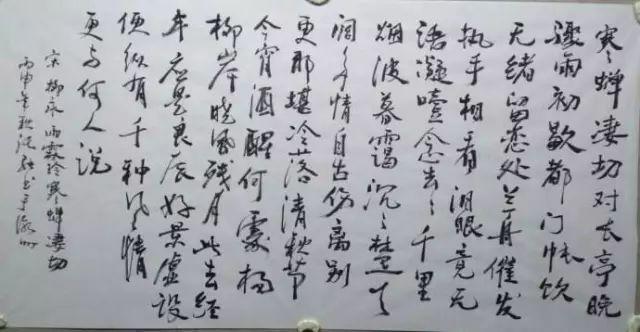 寒蝉凄切对长亭晚
骤雨初歇都门帐饮
无绪留恋处兰舟催发
执手相看泪眼竟无
语凝噎念去々千里
烟波暮霭沉々楚天
阔多情自古伤离别
更那堪冷落清秋节
今宵酒醒何處杨
柳岸晓风残月此去经
年应是良辰好景虚设
便纵有千种风情
更与何人说
宋柳永雨霖铃寒蝉凄切
丙申年秋书于